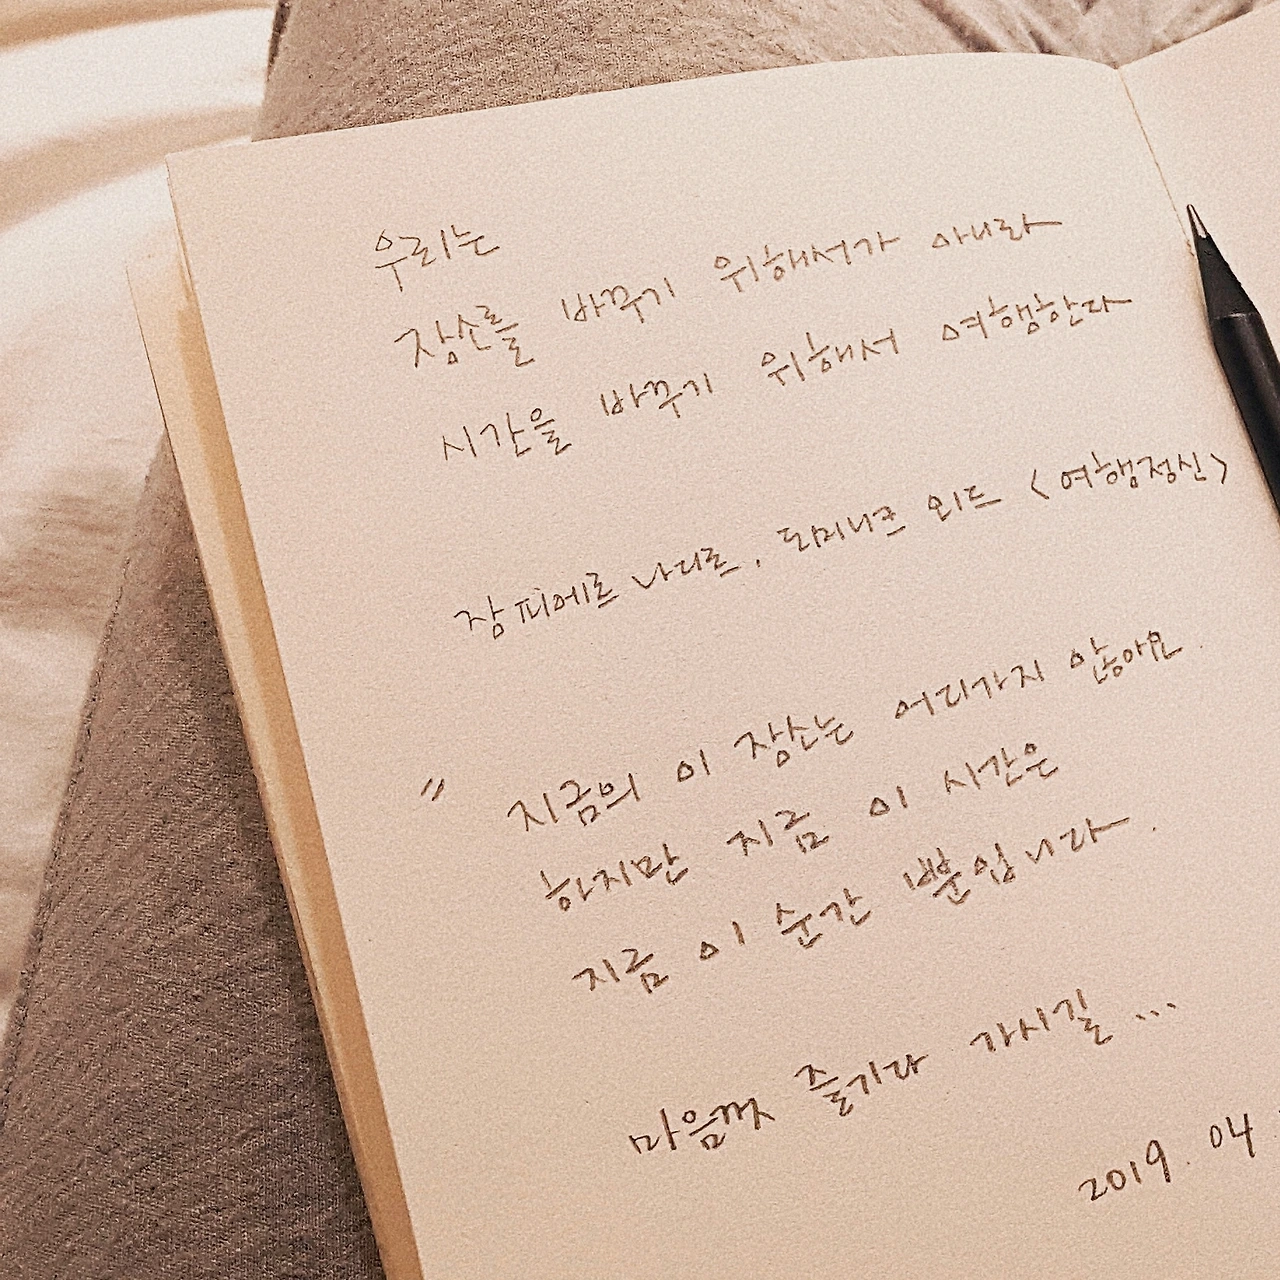 우리는
장소를 바꾸기 위해서가 아니라
시간을 바꾸기 위해서 여행한다
장 피에르 나디르, 도미니크 외드 <여행정신>
" 지금의 이 장소는 어디가지 않아요.
하지만 지금 이 시간은
지금 이 순간 뿐입니다.
마음껏 즐기다 가시길 ...
2019. 04